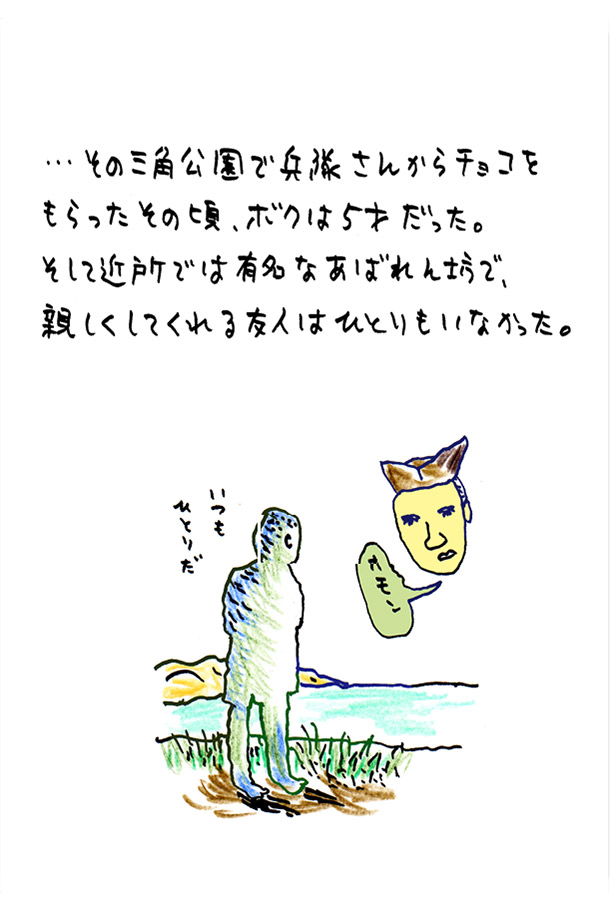 …その三角公園で兵隊さんからチョコを
もらったその頃、ボクは5才だった。
そして近所では有名なあばれん坊で、
親しくしてくれる友人はひとりもいなかった。
いつも
ひとりだ
カモン